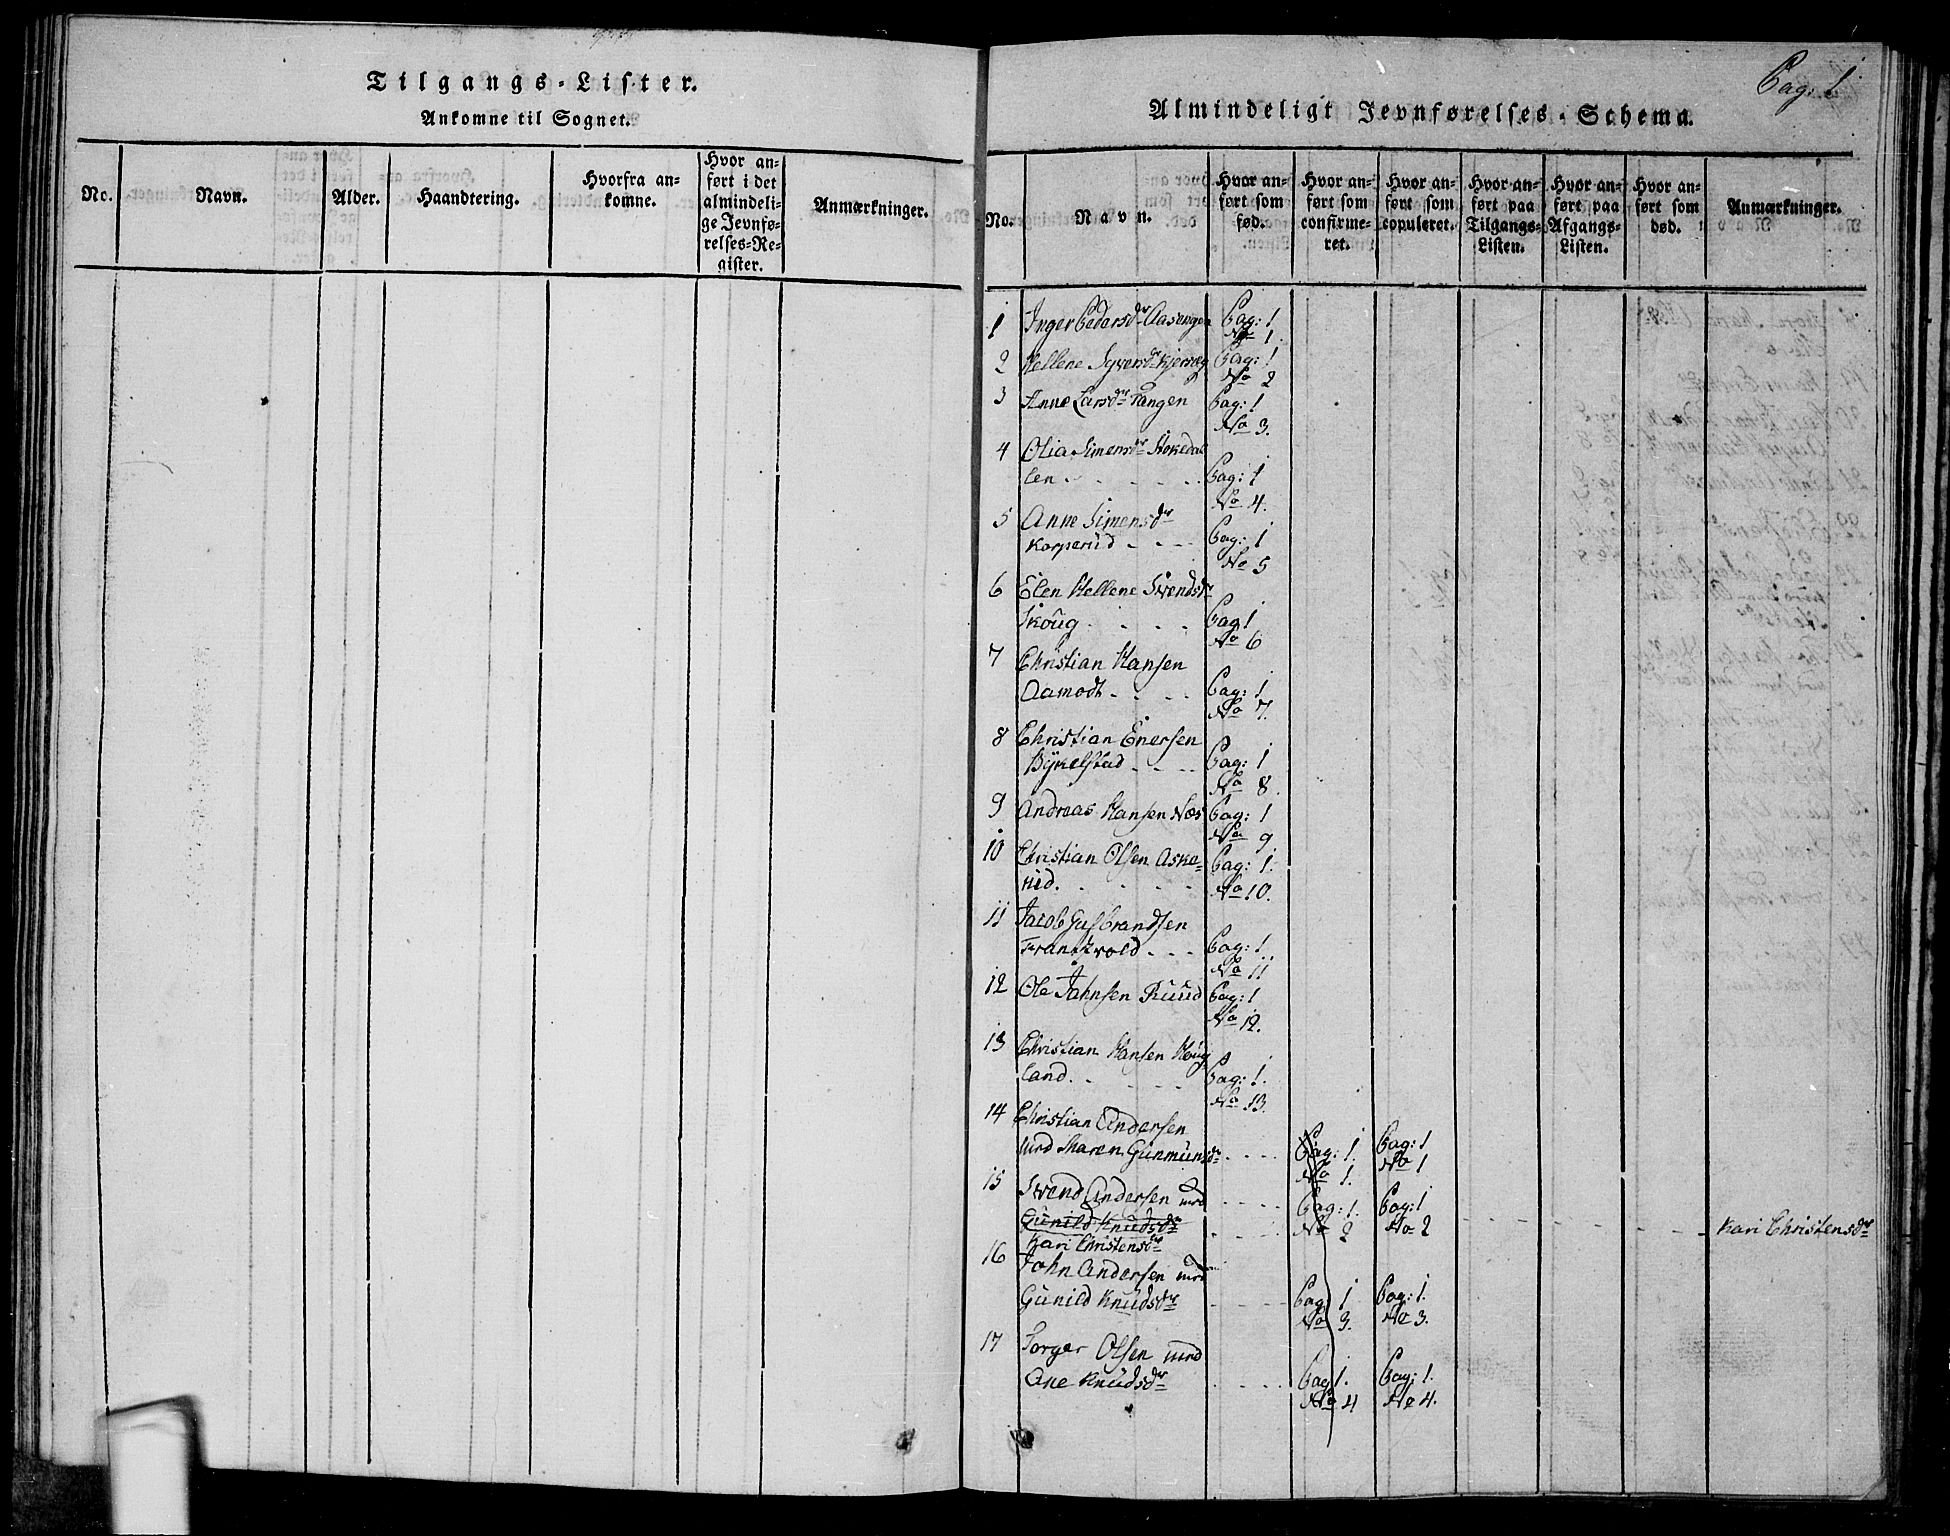 Tilgangs-Lister.
Ankomne til Sognet.
No.
Navn.
Alder.
Haandtering.
Hvorfra an-
komne.
Hvor an-
ført i det
almindeli-
ge Jevnfø-
relses-Re-
gister.
Anmærkninger.
Pag: 1
Almindeligt Jevnførelses-Schema.
No.
Navn.
Hvor an-
ført som
fød.
Hvor an-
ført som
confirme-
ret.
Hvor an-
ført som
copuleret.
Hvor an-
ført paa
Tilgangs-
Listen.
Hvor an-
ført paa
Afgangs-
Listen.
Hvor an-
ført som
død.
Anmærkninger.
1 Inger Pedersdr Aasengen Pag: 1
No 1.
2 Hellene Syversdr Pag: 1
No 2
3 Anne Larsdr Tangen Pag: 1
No 3.
4 Olia Simensdr Stokedal
len - - - - - Pag: 1
No 4.
5 Anne Simensdr
Korperud - - - Pag: 1
No 5
6 Elen Hellene Svendsdr
Skoug - - - - Pag 1
No 6
7 Christian Hansen
Aamodt - - - Pag: 1
No 7.
8 Christian Enersen
Bykelstad - - - Pag: 1
No 8.
9 Andreas Hansen Næs Pag: 1
No 9
10 Christian Olsen Aske-
rud. - - - - Pag: 1.
No 10.
11 Jacob Gulbrandsen
Frantzvold - - - Pag: 1.
No 11
12 Ole Jahnsen Ruud Pag: 1
No 12.
13 Christian Hansen Houg
land. - - - - Pag: 1.
No 13.
14 Christian Andersen
med Maren Gunmunsdr - - - Pag: 1. Pag: 1
No 1. No 1
15 Svend Andersen med - - - - Pag: 1. Pag: 1
Gunild Knudsdr No 2 No 2 - - - - Kari Christensdr
Kari Christensdr
16 John Andersen med
Gunild Knudsdr - - - - Pag 1 Pag: 1.
No 3. No 3.
17 Torger Olsen med
Ane Knudsdr - - - - Pag 1. Pag: 1.
No 4 No 4.